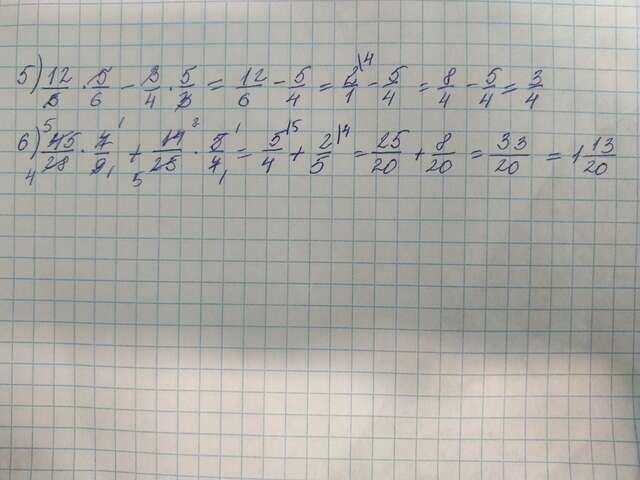 5) 12/5 · 5/6 - 3/4 · 5/3 = 12/6 - 5/4 = 2/1 \4 - 5/4 = 8/4 - 5/4 = 3/4
6) 5 45/28 4 · 7/9 1 1 + 14/25 2 5 · 5/7 1 1 = 5/4 \5 + 2/5 \4 = 25/20 + 8/20 = 33/20 = 1 13/20